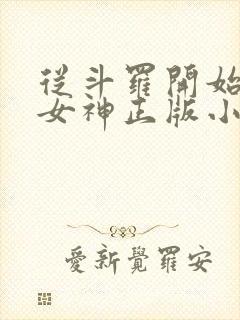 從斗羅開始
女神正版小
愛新覺羅安